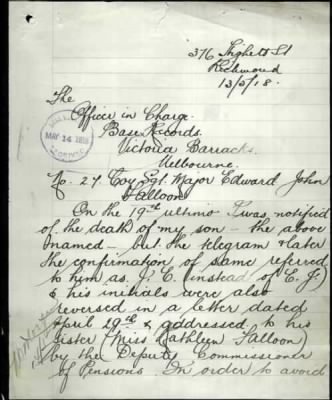 376 Highett St
Richmond
13/5/18.
The
Officer in Charge.
Base Records.
Victoria Barracks.
Melbourne.
MAY 14 1918
No. 27 Coy Sgt. Major Edward John
Falloon
On the 19th ultimo I was notified
of the death of my son – the above
named – but the telegram & later
the confirmation of same referred
to him as J. E. (instead of E. J)
& his initials were also
reversed in a letter dated
April 29th & addressed to his
sister (Miss Kathleen Falloon)
by the Deputy Commissioner
of Pensions. In order to avoid